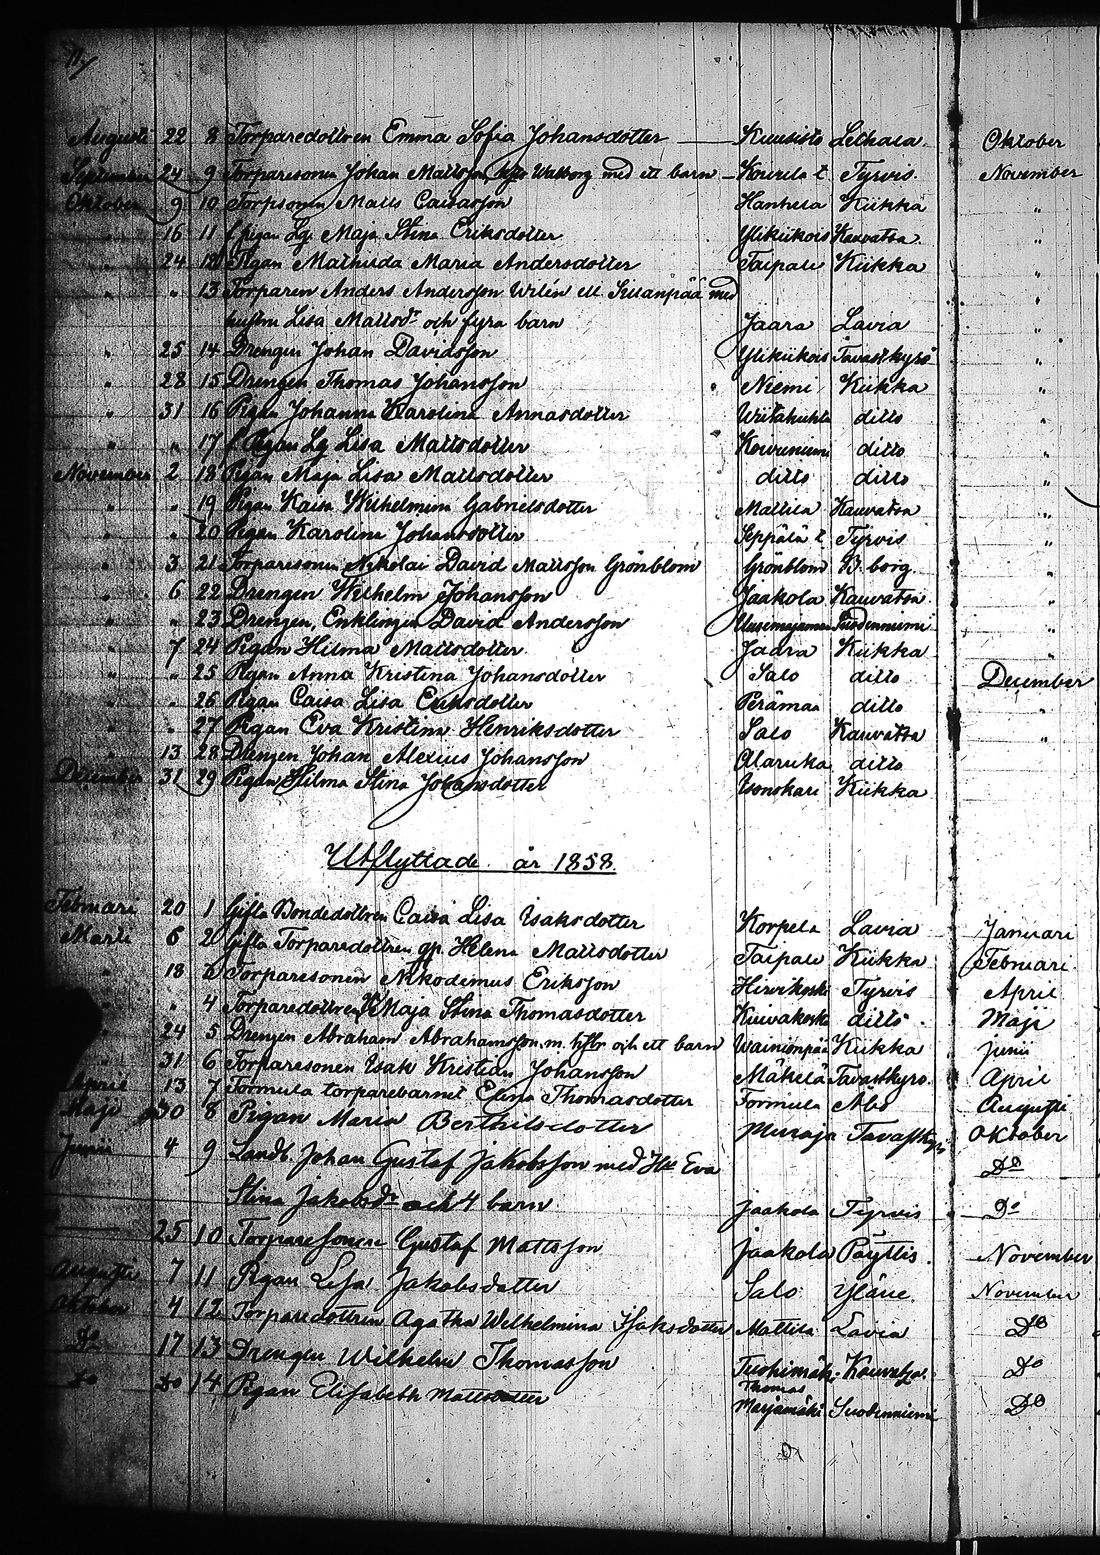 Augusti 22 8 Torparedottren Emma Sofia Johansdotter Kuusisto Lethala Oktober
September 24 9 Torparesonen Johan Mattsson hfr Walborg med ett barn Kourila t Tyrvis November
Oktober 9 10 Torpsonen Matts Caisasson Hanhela Kiikka "
" 16 11 f. pigan Lg Maja Stina Eriksdotter Ylikiikois Kauvatsa "
" 24 12 Pigan Mathilda Maria Andersdotter Taipale Kiikka "
" " 13 Torparen Anders Andersson Wilén ell. med "
hustru Lisa Mattsdr och fyra barn Jaara Lavia "
" 25 14 Drengen Johan Davidsson Ylikiikois Tavastkyrö "
" 28 15 Drengen Thomas Johansson Niemi Kiikka "
" 31 16 Pigan Johanna Karolina Annasdotter ditto "
" " 17 f. Pigan Lg Lisa Mattsdotter Kouvuniemi ditto "
November 2 18 Pigan Maja Lisa Mattsdotter ditto ditto "
" " 19 Pigan Kaisa Wilhelmina Gabrielsdotter Mattila Kauvatsa "
" " 20 Pigan Karolina Johansdotter Seppälä t Tyrvis "
" 3 21 Torparesonen Nikolai David Mattsson Grönblom Grönblom B:borg "
" 6 22 Drengen Wilhelm Johansson Jaakola Kauvatsa "
" " 23 Drengen, Enklingen David Andersson Suodenniemi "
" 7 24 Pigan Hilma Mattsdotter Jaara Kiikka "
" " 25 Pigan Anna Kristina Johansdotter Salo ditto December
" " 26 Pigan Caisa Lisa Eriksdotter Perämaa ditto "
" " 27 Pigan Eva Kristina Henriksdotter Salo Kauvatsa "
" 13 28 Drengen Johan Alexius Johansson Alaruka ditto
December 31 29 Pigan Hilma Stina Johansdotter Isonokari Kiikka
Utflyttade år 1858.
Februari 20 1 Gifta Bondedottren Caisa Lisa Isaksdotter Korpela Lavia Januari
Marti 6 2 Gifta Torparedottren Helena Mattsdotter Taipale Kiikka Februari
" 18 3 Torparesonen Nikodemus Eriksson Hirvikoski Tyrvis April
" " 4 Torparedottren Maja Stina Thomasdotter Kuivakoski ditto Maji
" 24 5 Drengen Abraham Abrahamsson m. hfr och ett barn Wainionpää Kiikka Junii
" 31 6 Torparesonen Isak Kristian Johansson Mäkelä Tavastkyro April
April 13 7 Formula torparebarnet Elina Thomasdotter Formula Åbo Augusti
Maji 30 8 Pigan Maria Berthilsdotter Muraja Tavastkyrö Oktober
Junii 4 9 Landb. Johan Gustaf Jakobsson med Hu Eva Do
Stina Jakobsdr och 4 barn Jaakola Tyrvis Do
25 10 Torparesonen Gustaf Mattsson Jaakola Pöytis November
Augusti 7 11 Pigan Lisa Jakobsdotter Salo Yläne November
Oktober 4 12 Torparedottren Agatha Wilhelmina Isaksdotter Mattila Lavia Do
Do 17 13 Drengen Wilhelm Thomasson Tuohimäki Kauvatsa Do
Do Do 14 Pigan Elisabeth Mattsdotter Thomas Marjamäki Suodenniemi Do